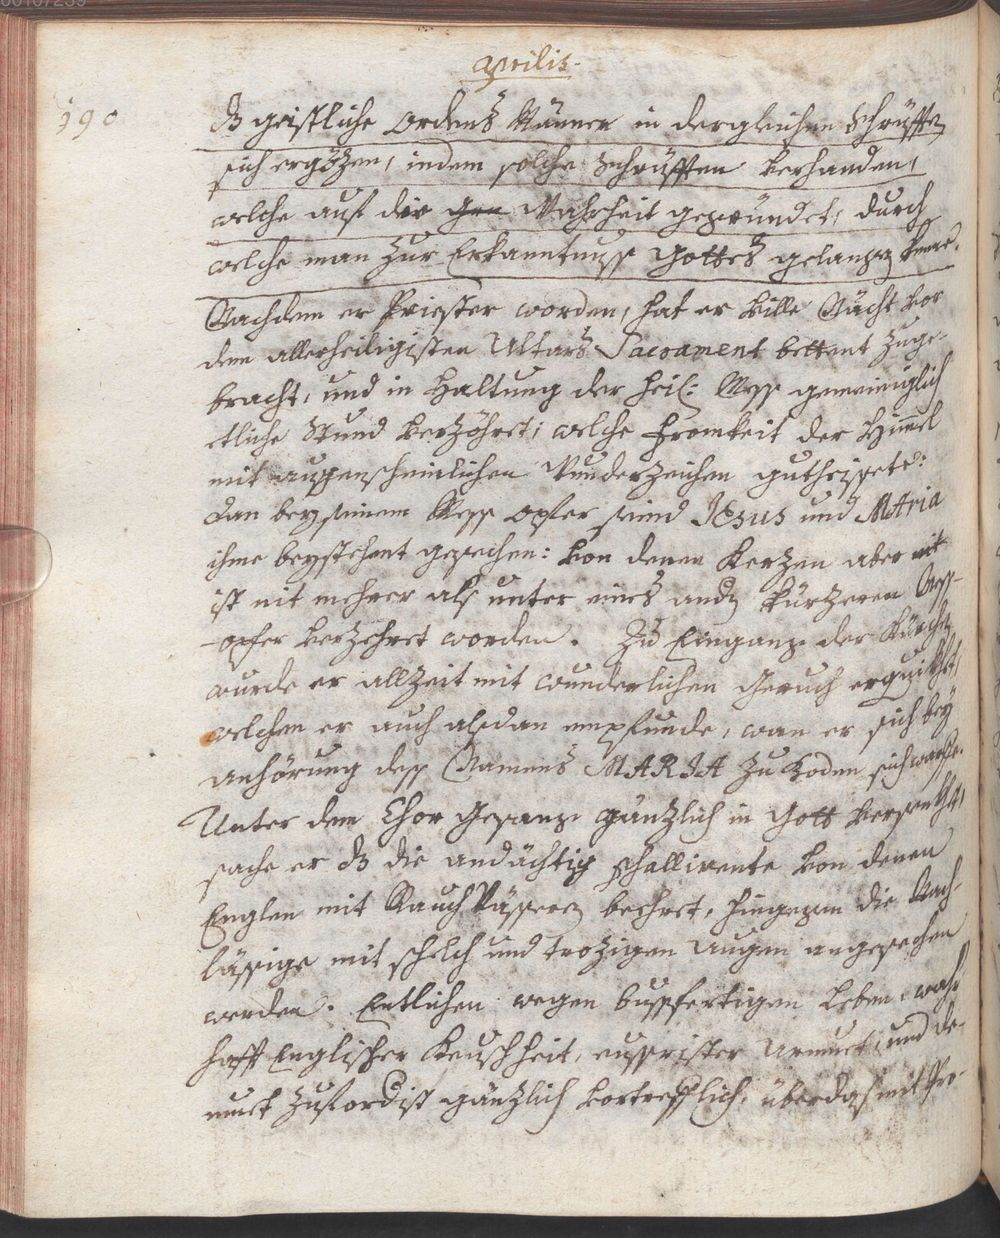 00107259
Aprilis.
190
dz geistliche Ordens Männer in dergleichen Schrüfften
sich ergözen, indem solche Schrüfften verhanden,
welche auf die Wahrheit gegründet, durch
welche man zur Erkanntnuss Gottes gelangen kenne.
Nachdem er Priester worden, hat er ville Nächt vor
dem allerheiligisten Altars Sacrament bettent zuge-
bracht, und in Haltung der heil: Mess gemeiniglich
etliche Stund verzöhret; welche Fromkeit der Himel
mit augenscheinlichen Wunderzeichen gutheissete:
dan bey seinem Mess opfer seind JESUS und MARIA
ihme beystehent gesechen: von denen Kerzen aber
ist nit mehrer als unter eines andern kürzeren Mess-
-opfer verzehret worden. Zu Eingang der Kürchen
wurde er allzeit mit wunderlichen Geruch erquickhet,
welchen er auch alsdan empfunde, wan er sich bey
anhörung dess Namens MARIA zu boden sich warffe.
Unter dem Chor Gesang gänzlich in Gott versenkht,
sache er dz die andächtig psallirente von denen
Englen mit Rauch Vässeren beehret, hingegen die Nach-
lässige mit schelch und trozigen Augen angesechen
werden. Entlichen wegen bussfertigen Leben, wahr-
hafft Englischer Keuschheit, eusserister Armuet, und De-
muet gänzlich vortrefflich, überdas mit Pro-